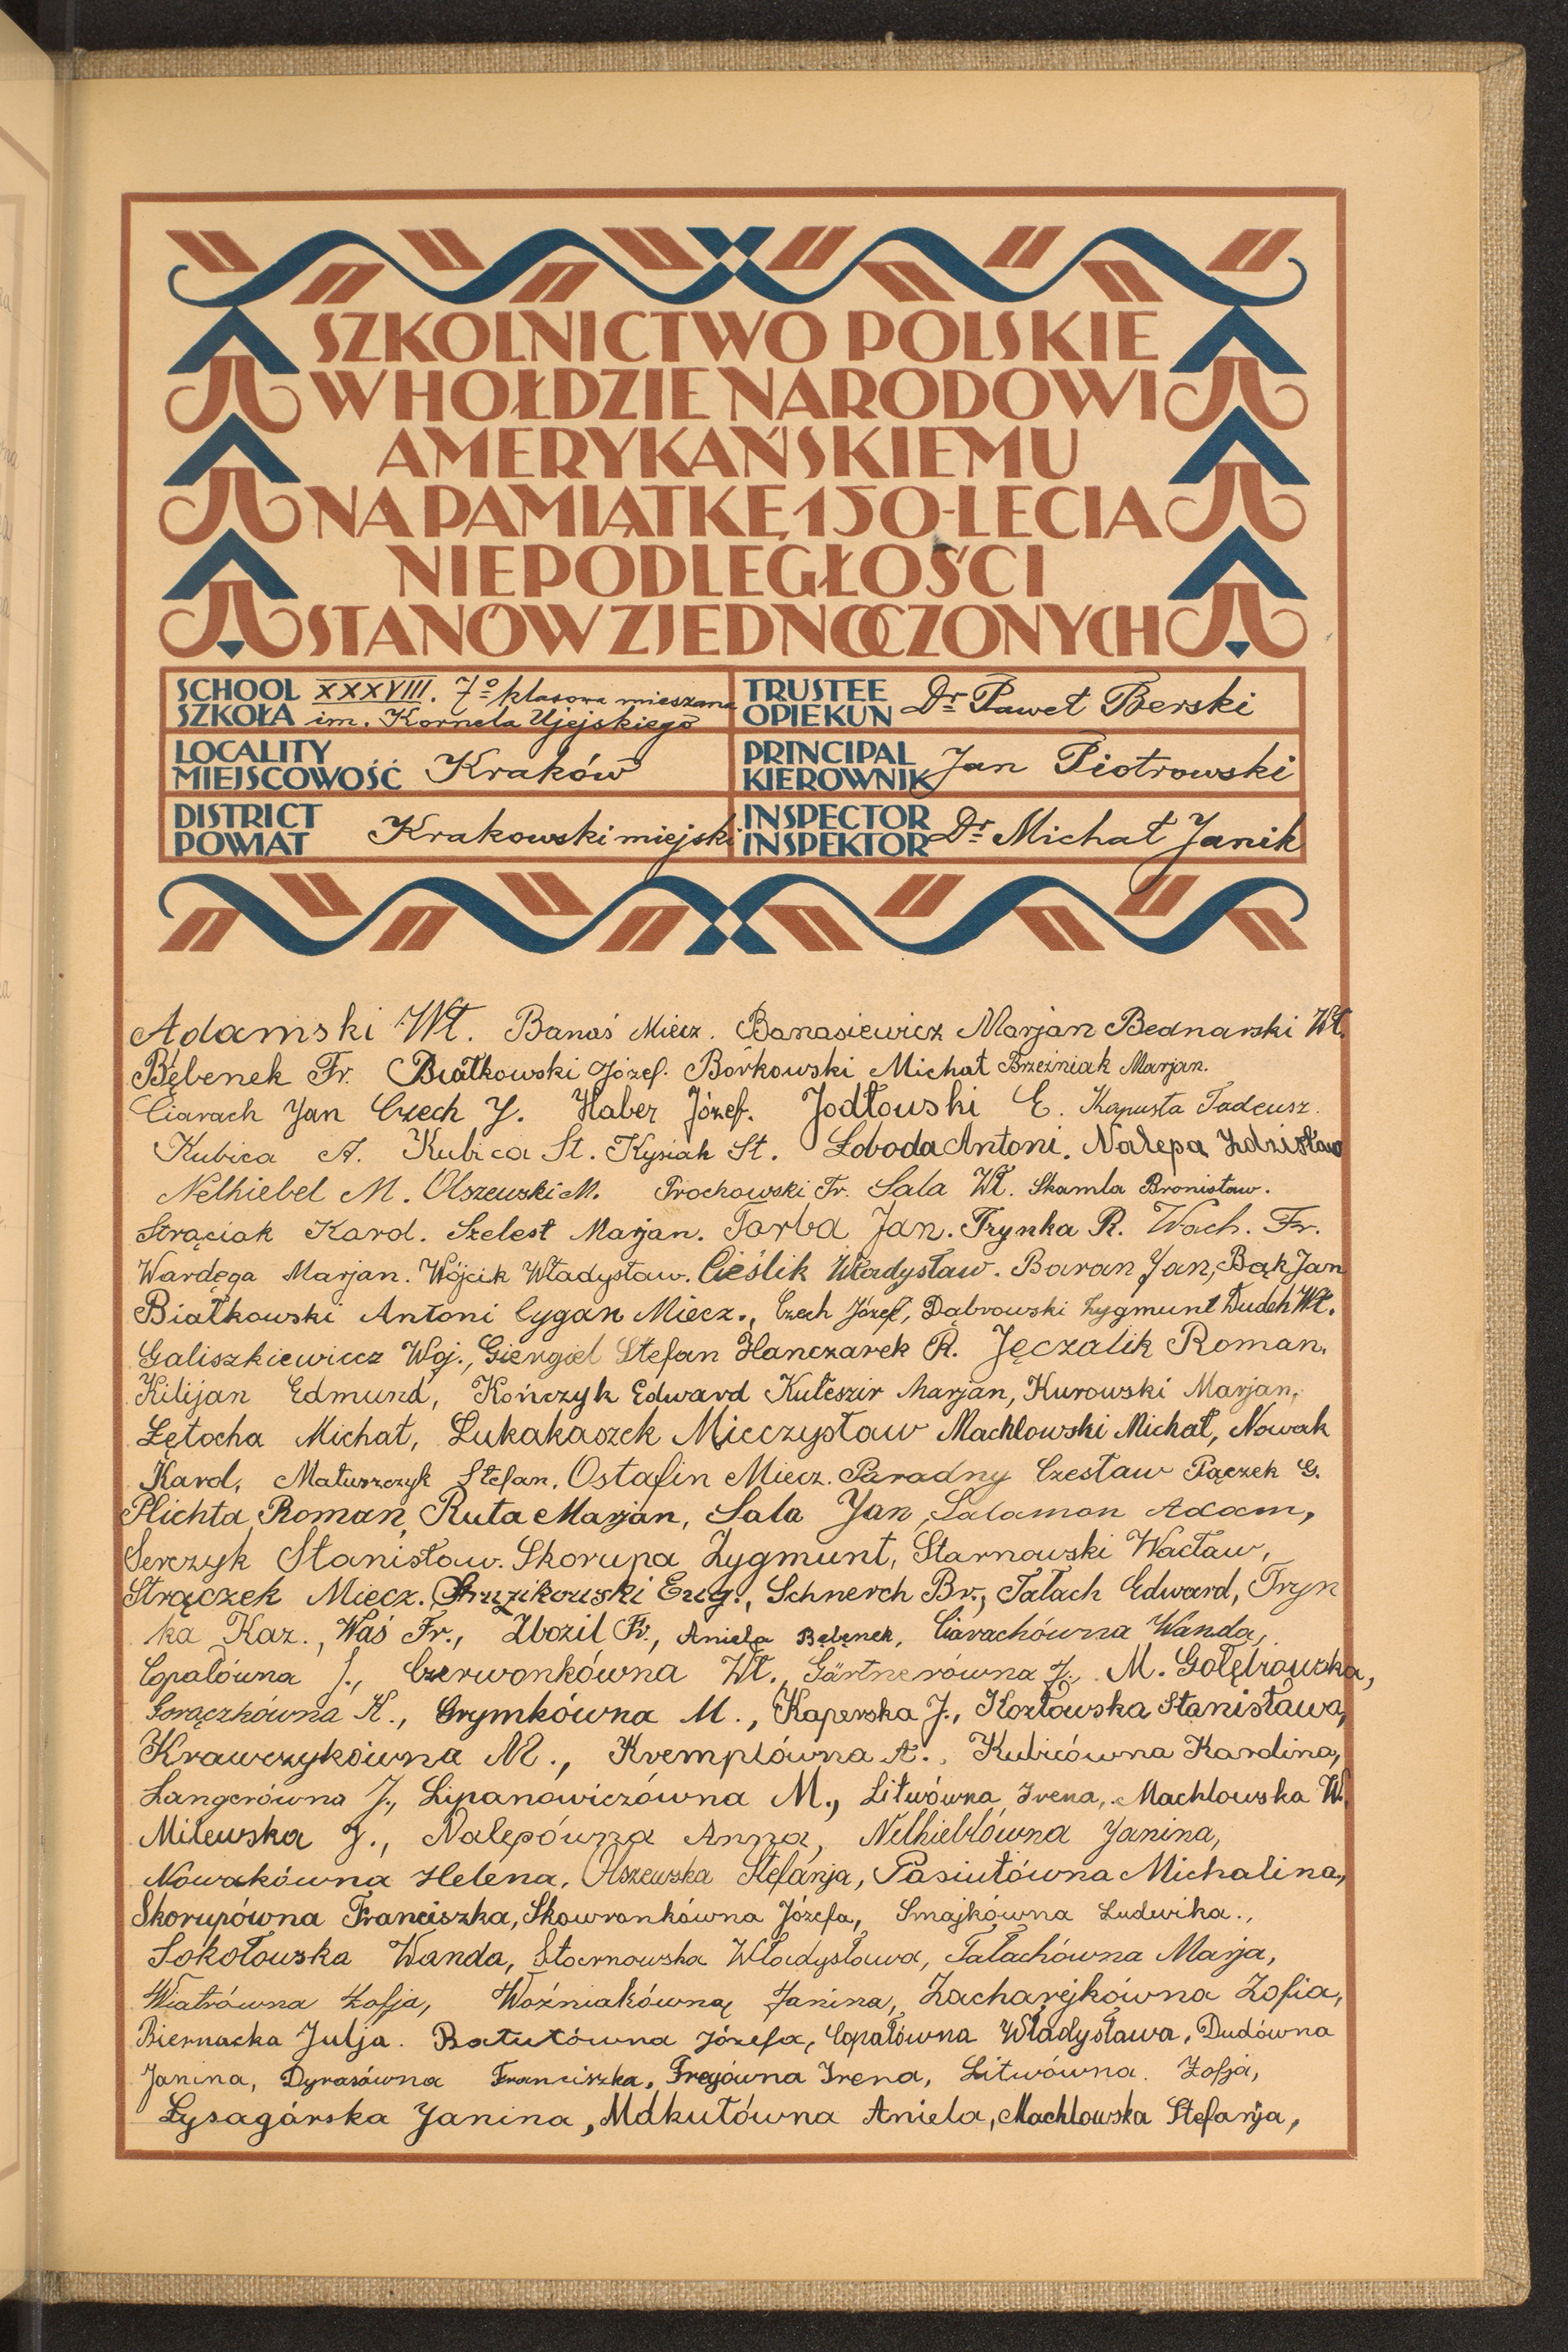 SZKOLNICTWO POLSKIE
W HOŁDZIE NARODOWI
AMERYKAŃSKIEMU
NA PAMIĄTKĘ 150-LECIA
NIEPODLEGŁOŚCI
STANÓW ZJEDNOCZONYCH
SCHOOL SZKOŁA XXXVIII. 7º klasowa mieszana
im. Kornela Ujejskiego
TRUSTEE OPIEKUN Dr Paweł Berski
LOCALITY MIEJSCOWOŚĆ Kraków
PRINCIPAL KIEROWNIK Jan Piotrowski
DISTRICT POWIAT Krakowski miejski
INSPECTOR INSPEKTOR Dr Michał Janik
Adamski Wł. Banaś Miecz. Banasiewicz Marjan Bednarski Wł.
Bębenek Fr. Białkowski Józef. Borkowski Michał Brzeźniak Marjan.
Ciarach Jan Czech J. Haber Józef. Jodłowski E. Kapusta Tadeusz.
Kubica A. Kubica St. Kysiak St. Łoboda Antoni. Nalepa Zdzisław
Nelhiebel M. Olszewski M. Prochowski Fr. Sala Wł. Skamla Bronisław.
Strąciak Karol. Szelest Marjan. Torba Jan. Trynka R. Wach. Fr.
Wardęga Marjan. Wójcik Władysław. Cieślik Władysław. Baran Jan, Bąk Jan
Białkowski Antoni Cygan Miecz., Czech Józef, Dąbrowski Zygmunt Dudek Wł.
Galiszkiewicz Woj., Giergiel Stefan Hanczarek R. Jęczalik Roman.
Kilijan Edmund, Kończyk Edward Marjan, Kurowski Marjan,
Łętocha Michał, Łukakaszek Mieczysław Machlowski Michał, Nowak
Karol, Matuszczyk Stefan. Ostafin Miecz. Paradny Czesław Pączek G.
Plichta Roman, Ruta Marjan, Sala Jan, Salamon Adam,
Serczyk Stanisław. Skorupa Zygmunt, Starnowski Wacław,
Strączek Miecz. Eug., Schnerch Br., Tałach Edward, Tryn
ka Kaz., Waś Fr., Zbozil Fr., Aniela Bębenek, Ciarachówna Wanda,
Copałówna J., Czerwonkówna Wł., Gärtnerówna J., M. Gołębiowska,
Gorączkówna K., Grymkówna M., Kaperska J., Kozłowska Stanisława,
Krawczykówna M., Kremplówna A., Kubicówna Karolina,
Langerówna J., Lipanowiczówna M., Litwówna Irena, Machlowska W.
Milewska J., Nalepówna Anna, Nelhieblówna Janina,
Nowakówna Helena, Olszewska Stefanja, Pasiutówna Michalina,
Skorupówna Franciszka, Skowronkówna Józefa, Smajkówna Ludwika.,
Sokołowska Wanda, Starnowska Władysława, Tałachówna Marja,
Wiatrówna Zofja, Woźniakówna Janina, Zacharejkówna Zofia,
Biernacka Julja. Batutówna Józefa, Copałówna Władysława, Dudówna
Janina, Dyrasówna Franciszka, Freyówna Irena, Litwówna. Zofja,
Łysagórska Janina, Makutówna Aniela, Machlowska Stefanja,